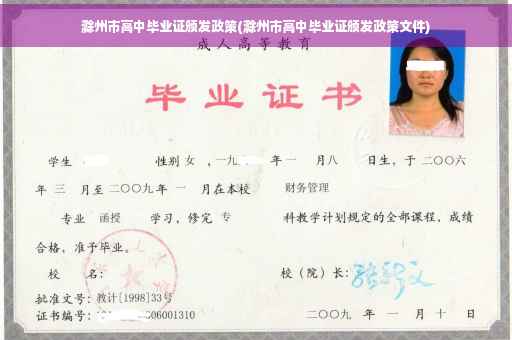 滁州市高中毕业证颁发政策(滁州市高中毕业证颁发政策文件)
成人高等教育
毕业证书
学生 性别 女 ，一九 年 一 月八 日生，于 二〇〇六
年 三 月至 二〇〇九 年 一 月在本校 财务管理
专业 函授 学习，修完 专 科教学计划规定的全部课程，成绩
合格，准予毕业。
校 名： 校（院）长：
批准文号：教计[1998]33号
证书编号： 06001310 二〇〇九 年 一 月 十 日